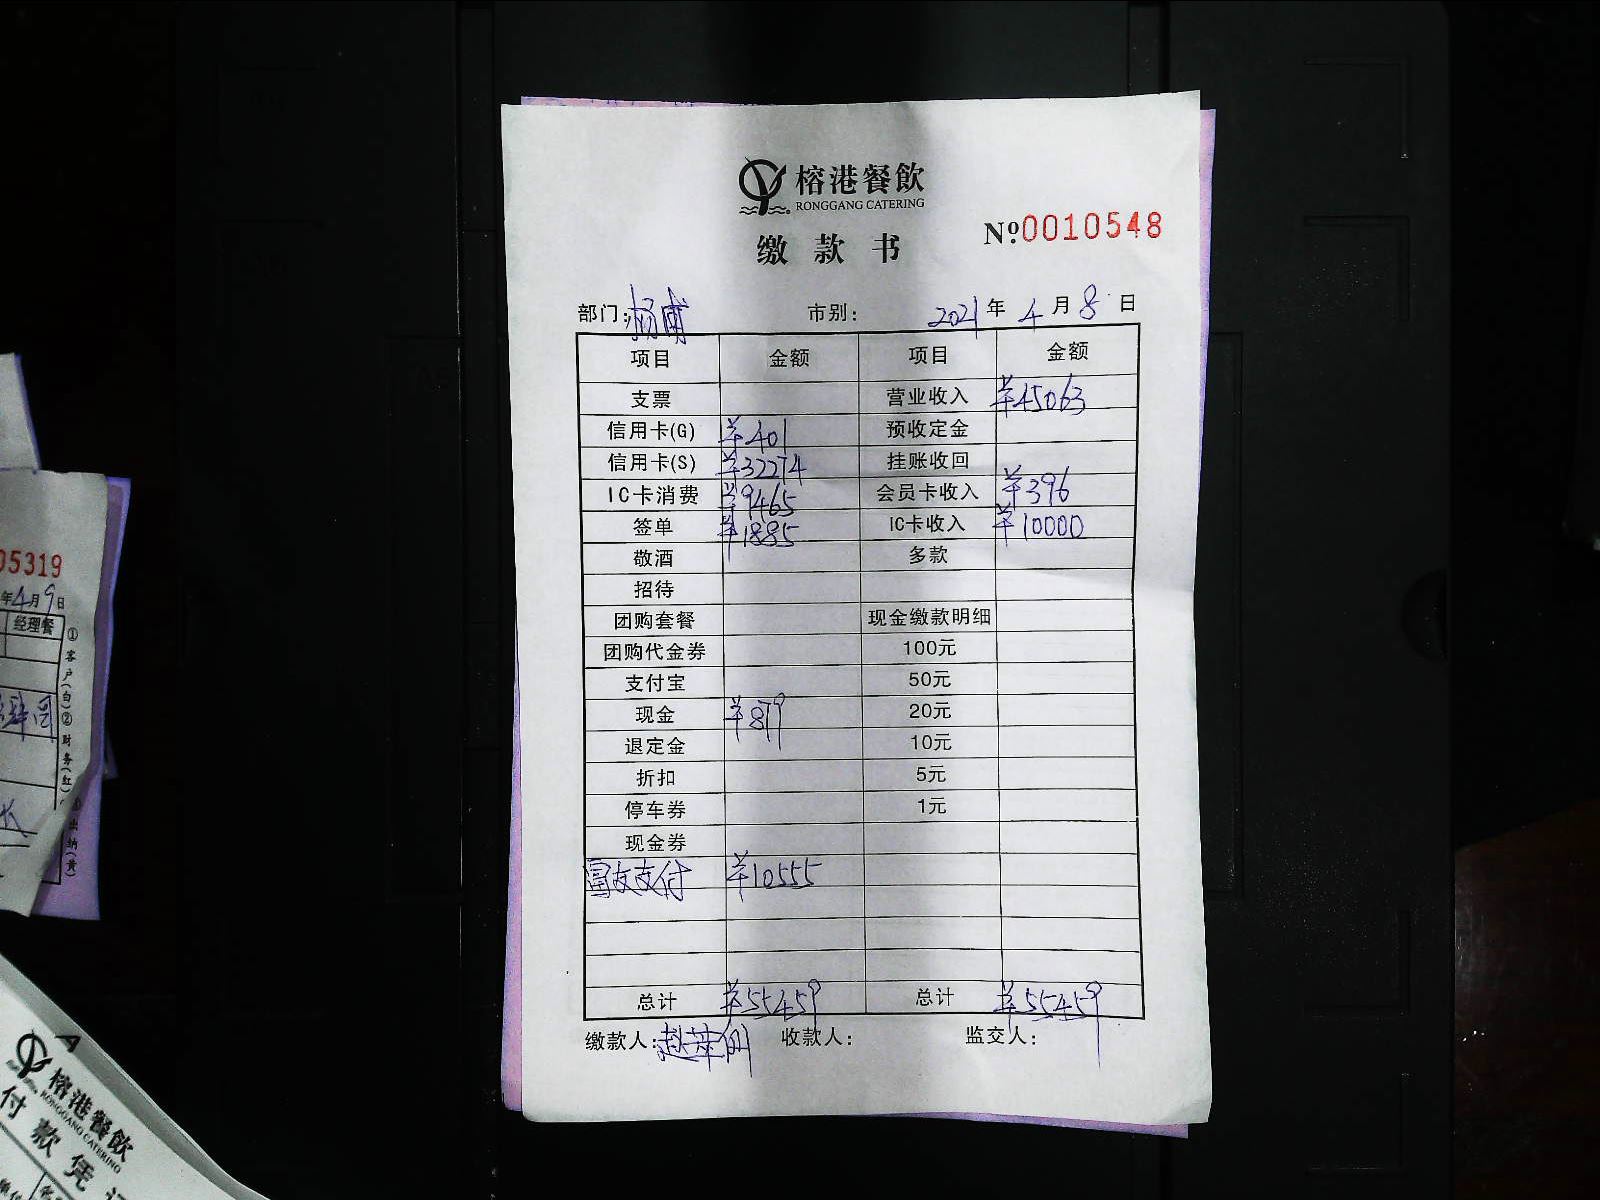 榕港餐飲
RONGGANG CATERING
缴款书
№0010548
部门：杨浦 市别： 2021年4月8日
项目 金额 项目 金额
支票 营业收入 ¥45063
信用卡(G) ¥401 预收定金
信用卡(S) ¥32274 挂账收回
IC卡消费 ¥9465 会员卡收入 ¥396
签单 ¥1885 IC卡收入 ¥10000
敬酒 多款
招待
团购套餐 现金缴款明细
团购代金券 100元
支付宝 50元
现金 ¥879 20元
退定金 10元
折扣 5元
停车券 1元
现金券
富友支付 ¥10555
总计 ¥55459 总计 ¥55459
缴款人： 收款人： 监交人：
05319
年4月9日
经理餐
①客户(白)②财务(红)
出纳(黄)
榕港餐飲
RONGGANG CATERING
付款凭